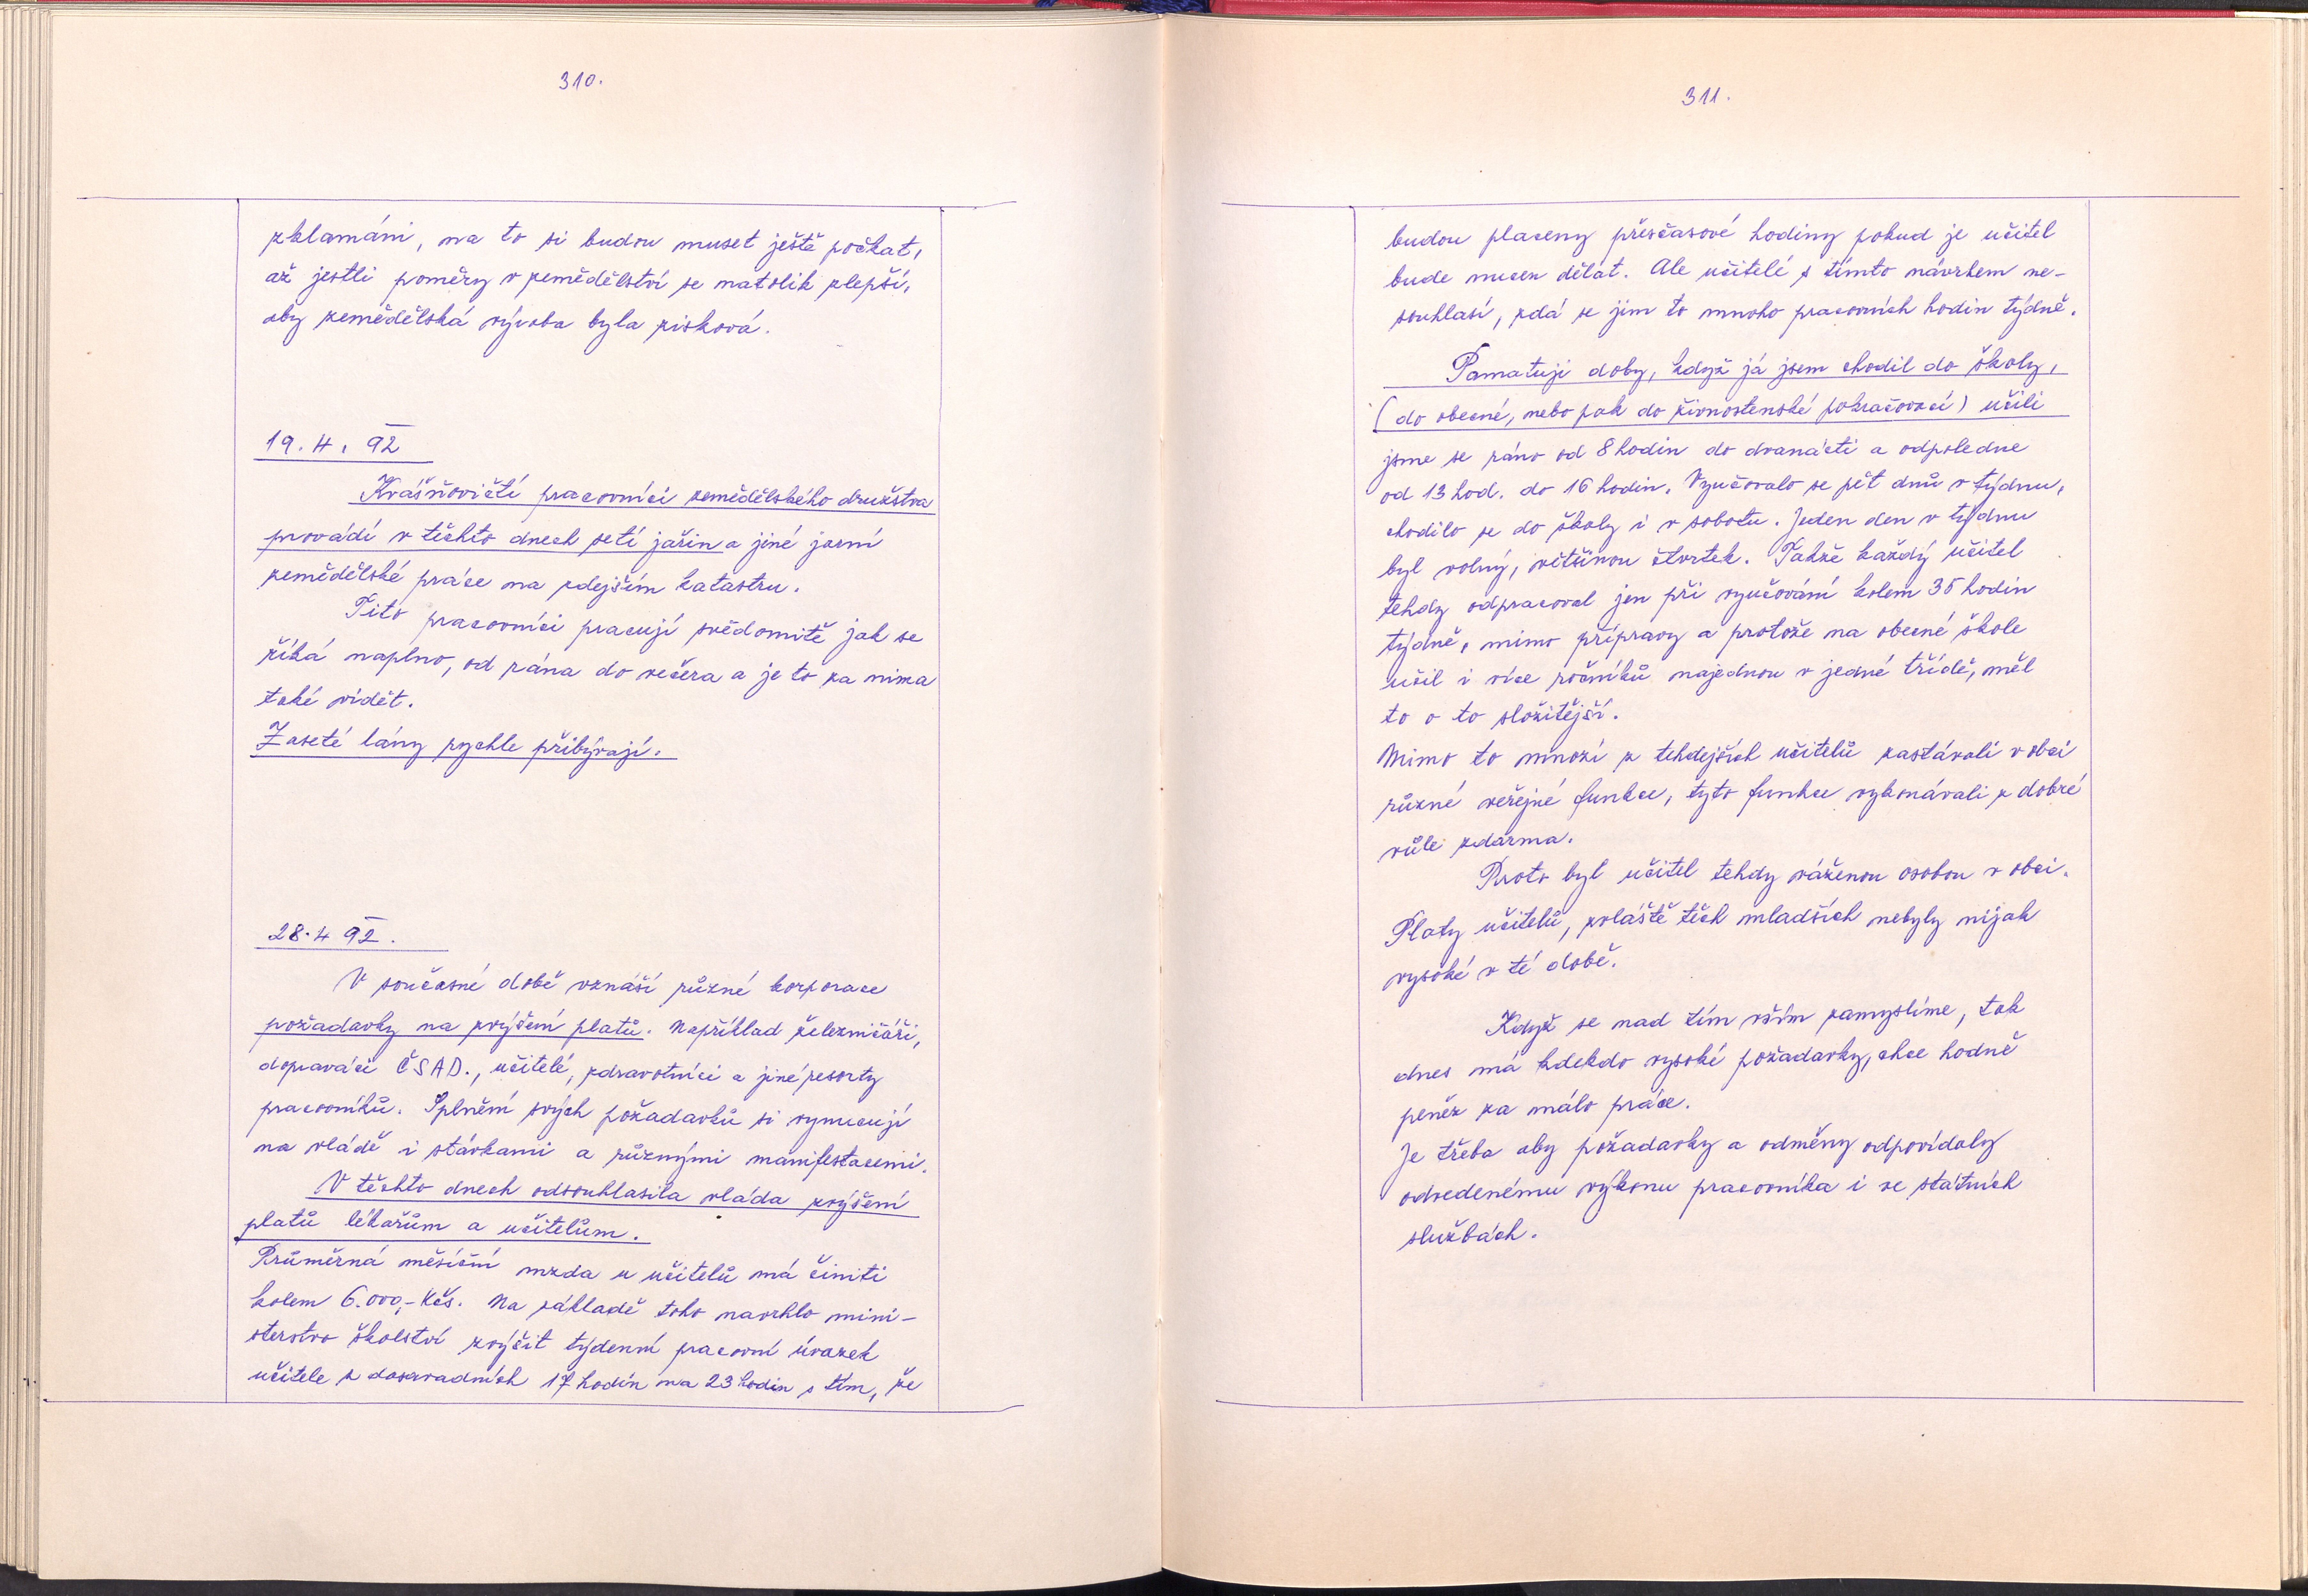 310.
zklamáni, na to si budou muset ještě počkat,
až jestli poměry v zemědělství se natolik zlepší,
aby zemědělská výroba byla zisková.
19. 4. 92
Krášňovičtí pracovníci zemědělského družstva
provádí v těchto dnech setí jařin a jiné jarní
zemědělské práce na zdejším katastru.
Tito pracovníci pracují svědomitě jak se
říká naplno, od rána do večera a je to za nima
také vidět.
Zaseté lány rychle přibývají.
28. 4 92.
V současné době vznáší různé korporace
požadavky na zvýšení platů. Například železničáři,
dopraváči ČSAD., učitelé, zdravotníci a jiné resorty
pracovníků. Splnění svých požadavků si vynucují
na vládě i stávkami a různými manifestacemi.
V těchto dnech odsouhlasila vláda zvýšení
platů lékařům a učitelům.
Průměrná měsíční mzda u učitelů má činiti
kolem 6.000,- Kčs. Na základě toho navrhlo mini-
sterstvo školství zvýšit týdenní pracovní úvazek
učitele z dosavadních 17 hodin na 23 hodin s tím, že
311.
budou placeny přesčasové hodiny pokud je učitel
bude muset dělat. Ale učitelé s tímto návrhem ne-
souhlasí, zdá se jim to mnoho pracovních hodin týdně.
Pamatuji doby, když já jsem chodil do školy,
(do obecné, nebo pak do živnostenské pokračovací) učili
jsme se ráno od 8 hodin do dvanácti a odpoledne
od 13 hod. do 16 hodin. Vyučovalo se pět dnů v týdnu,
chodilo se do školy i v sobotu. Jeden den v týdnu
byl volný, většinou čtvrtek. Takže každý učitel
tehdy odpracoval jen při vyučování kolem 35 hodin
týdně, mimo přípravy a protože na obecné škole
učil i více ročníků najednou v jedné třídě, měl
to o to složitější.
Mimo to mnozí z tehdejších učitelů zastávali v obci
různé veřejné funkce, tyto funkce vykonávali z dobré
vůle zdarma.
Proto byl učitel tehdy váženou osobou v obci.
Platy učitelů, zvláště těch mladších nebyly nijak
vysoké v té době.
Když se nad tím vším zamyslíme, tak
dnes má kdekdo vysoké požadavky, chce hodně
peněz za málo práce.
Je třeba aby požadavky a odměny odpovídaly
odvedenému výkonu pracovníka i ve státních
službách.